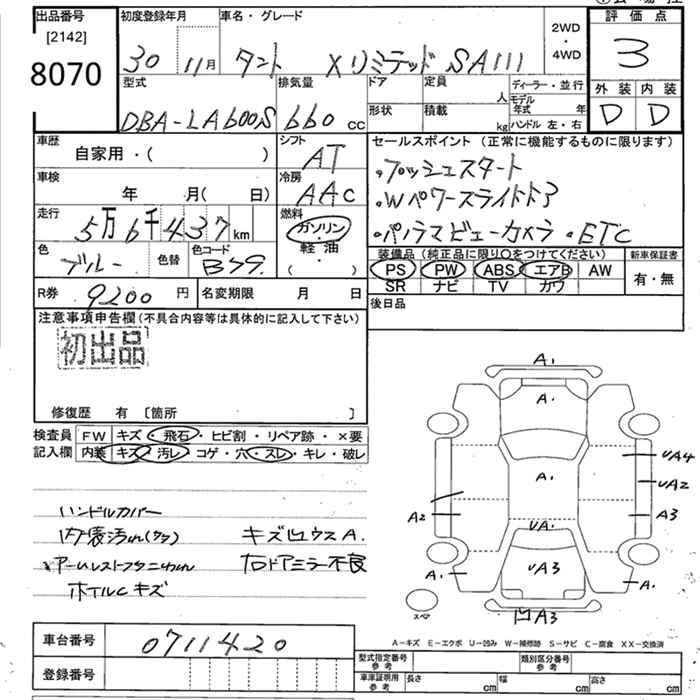 出品番号
[2142]
8070
初度登録年月
30 11月
車名・グレード
タント Xリミテッド SAIII
2WD
・
4WD
評価点
3
外装 内装
D D
型式
DBA-LA600S
排気量
660 cc
ドア
定員
人
形状
積載
kg
ディーラー・並行
モデル年式 年
ハンドル 左・右
車歴
自家用・( )
シフト
AT
車検
年 月( 日)
冷房
AAC
走行
5万6千437km
燃料
ガソリン
軽油
( ・ )
色
ブルー
色替
色コード
B59
R券 9200 円
名変期限 月 日
セールスポイント(正常に機能するものに限ります)
・プッシュスタート
・Wパワースライドドア
・パノラマビューカメラ ・ETC
装備品(純正品に限り〇をつけてください)
PS PW ABS エアB AW
SR ナビ TV カワ
新車保証書
有・無
後日品
注意事項申告欄(不具合内容等は具体的に記入して下さい)
初出品
修復歴 有 〔箇所 〕
検査員記入欄
FW キズ・飛石・ヒビ割・リペア跡・×要
内装 キズ・汚レ・コゲ・穴・スレ・キレ・破レ
ハンドルカバー
内装汚れ
キズ凹ウスA.
右ドアミラー不良
ホイルCキズ
A.
A.
A.
UA
UA3
A2
UA4
UA2
A3
A.
A.
凹A3
スペア
A-キズ E-エクボ U-凹み W-補修跡 S-サビ C-腐食 XX-交換済
車台番号 0711420
登録番号
型式指定番号
参考
類別区分番号
参考
車庫証明用
参考
長さ cm
幅 cm
高さ cm